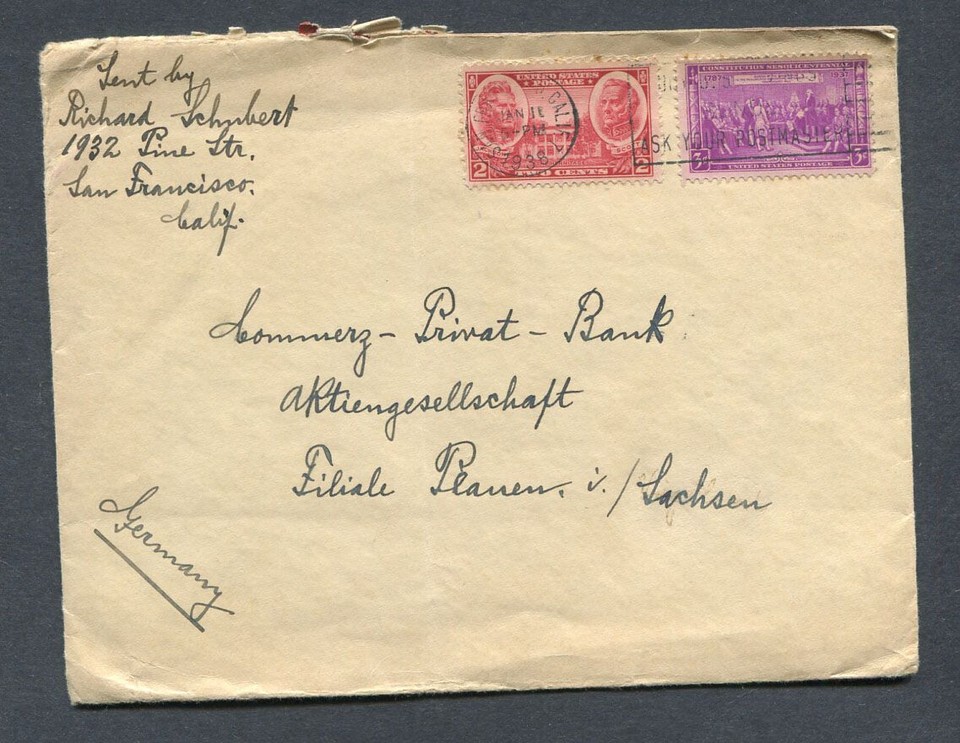 Sent by
Richard Schubert
1932 Pine Str.
San Francisco.
Calif.
UNITED STATES
POSTAGE
2 TWO CENTS 2
CONSTITUTION SESQUICENTENNIAL
1787 1937
3¢ 3¢
UNITED STATES POSTAGE
CALIF.
JAN 11
PM
1938
ASK YOUR POSTMASTER
Commerz - Privat - Bank
Aktiengesellschaft
Filiale Plauen. i. / Sachsen
Germany